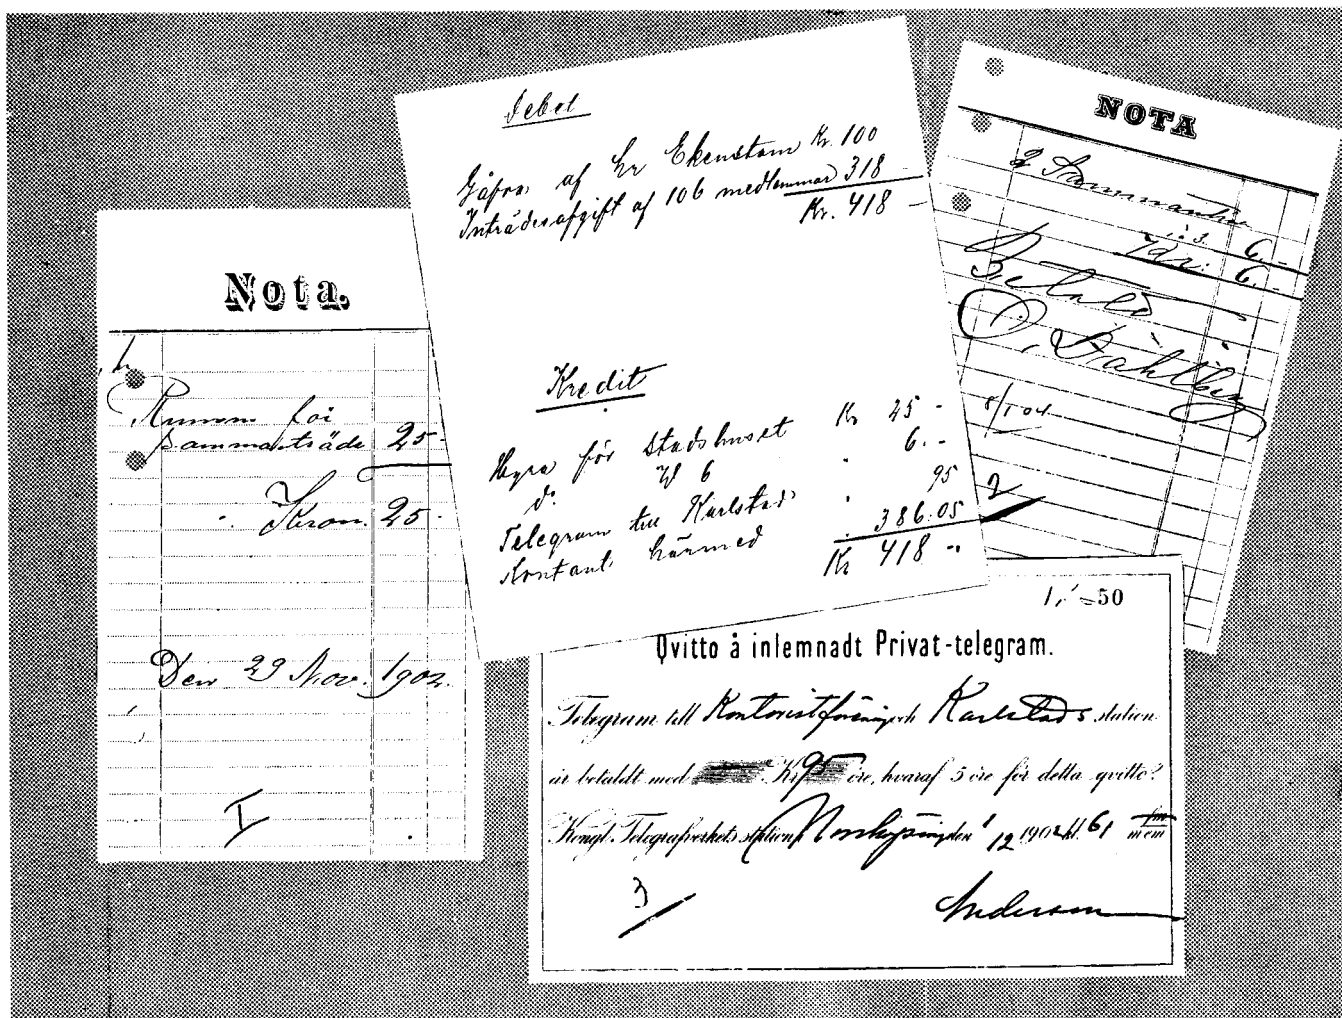 Nota.
Rum för
sammanträde 25 -
Kron. 25 -
Den 29 Nov. 1902.
I
Debet
Gåfva af Hr Ekenstam Kr. 100
Inträdesafgift af 106 medlemmar 318 -
Kr. 418 -
Kredit
Hyra för Stadshuset Kr 25 -
d:o 6. -
Telegram till Karlstad 95
Kontant härmed 386.05
Kr 418 -
NOTA
2 Sammantr
6 -
Kr: 6. -
Betald
Dahlberg
8/1 04
2
50
Qvitto å inlemnadt Privat-telegram.
Telegram till Kontoristförening och Karlstads station
är betaldt med Kr 95 öre, hvaraf 5 öre för detta qvitto.
Kongl. Telegrafverkets station Norrköping den 1/12 1902 kl. 61 fm
em
3
Anderson